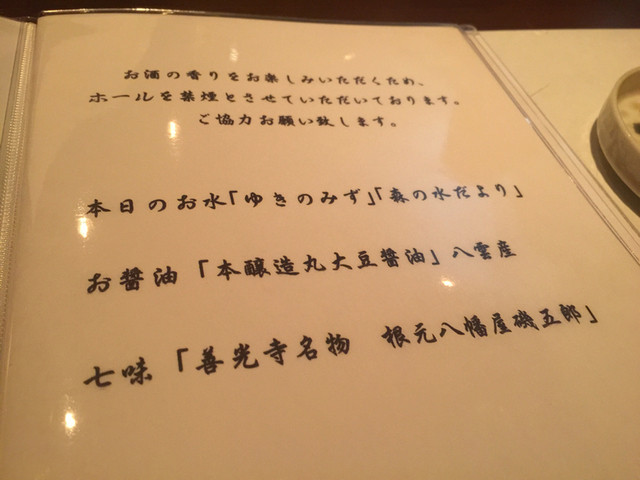 お酒の香りをお楽しみいただくため、
ホールを禁煙とさせていただいております。
ご協力お願い致します。
本日のお水「ゆきのみず」「森の水だより」
お醤油「本醸造丸大豆醤油」八雲産
七味「善光寺名物　根元八幡屋磯五郎」